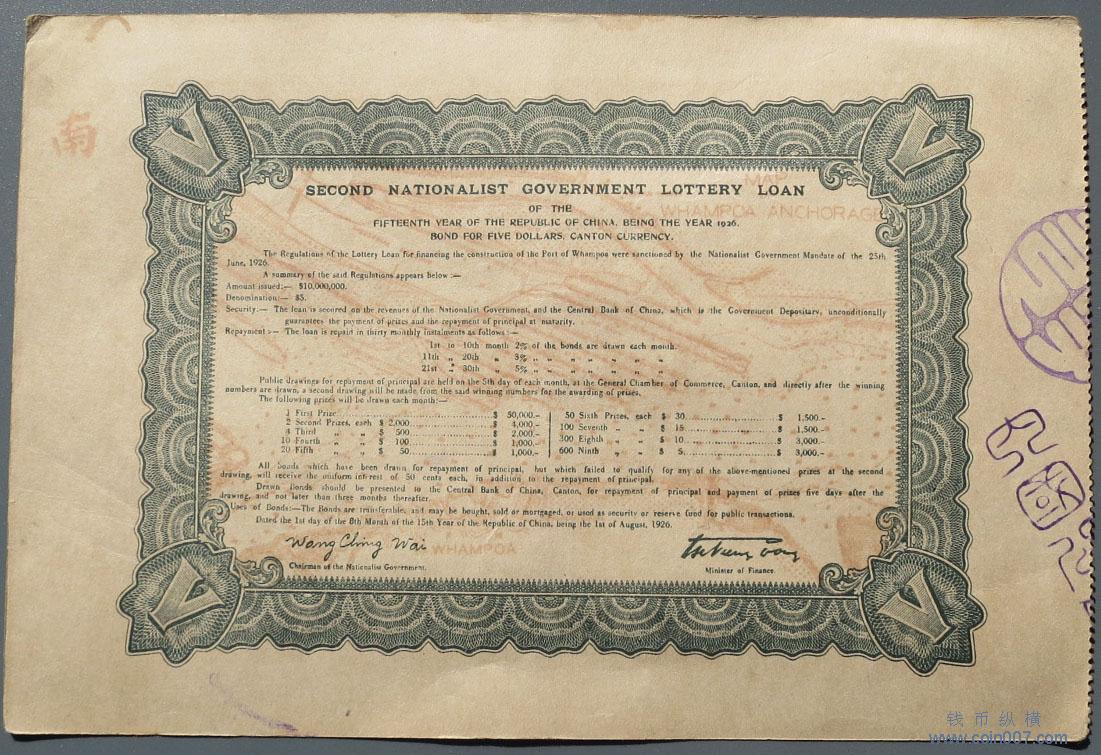 南
SECOND NATIONALIST GOVERNMENT LOTTERY LOAN
MAP
WHAMPOA ANCHORAGE
OF THE
FIFTEENTH YEAR OF THE REPUBLIC OF CHINA, BEING THE YEAR 1926.
BOND FOR FIVE DOLLARS, CANTON CURRENCY.
The Regulations of the Lottery Loan for financing the construction of the Port of Whampoa were sanctioned by the Nationalist Government Mandate of the 25th
June, 1926.
A summary of the said Regulations appears below :—
Amount issued:— $10,000,000.
Denomination:— $5.
Security:— The loan is secured on the revenues of the Nationalist Government, and the Central Bank of China, which is the Government Depositary, unconditionally
guarantees the payment of prizes and the repayment of principal at maturity.
Repayment :— The loan is repaid in thirty monthly instalments as follows :—
1st to 10th month 2% of the bonds are drawn each month.
11th „ 20th „ 3% „ „ „ „ „ „
21st „ 30th „ 5% „ „ „ „ „ „
Public drawings for repayment of principal are held on the 5th day of each month, at the General Chamber of Commerce, Canton, and directly after the winning
numbers are drawn, a second drawing will be made from the said winning numbers for the awarding of prizes.
The following prizes will be drawn each month:—
1 First Prize.......... $ 50,000.-
2 Second Prizes, each $ 2,000.......... $ 4,000.-
4 Third „ „ $ 500.......... $ 2,000.-
10 Fourth „ „ $ 100.......... $ 1,000.-
20 Fifth „ „ $ 50.......... $ 1,000.-
50 Sixth Prizes, each $ 30.......... $ 1,500.-
100 Seventh „ „ $ 15.......... $ 1,500.-
300 Eighth „ „ $ 10.......... $ 3,000.-
600 Ninth „ „ $ 5.......... $ 3,000.-
All bonds which have been drawn for repayment of principal, but which failed to qualify for any of the above-mentioned prizes at the second
drawing, will receive the uniform interest of 50 cents each, in addition to the repayment of principal.
Drawn Bonds should be presented to the Central Bank of China, Canton, for repayment of principal and payment of prizes five days after the
drawing, and not later than three months thereafter.
Uses of Bonds:—The Bonds are transferable, and may be bought, sold or mortgaged, or used as security or reserve fund for public transactions.
Dated the 1st day of the 8th Month of the 15th Year of the Republic of China, being the 1st of August, 1926.
Wang Ching Wai
WHAMPOA
Chairman of the Nationalist Government.
Minister of Finance.
钱币纵横
www.coin007.com